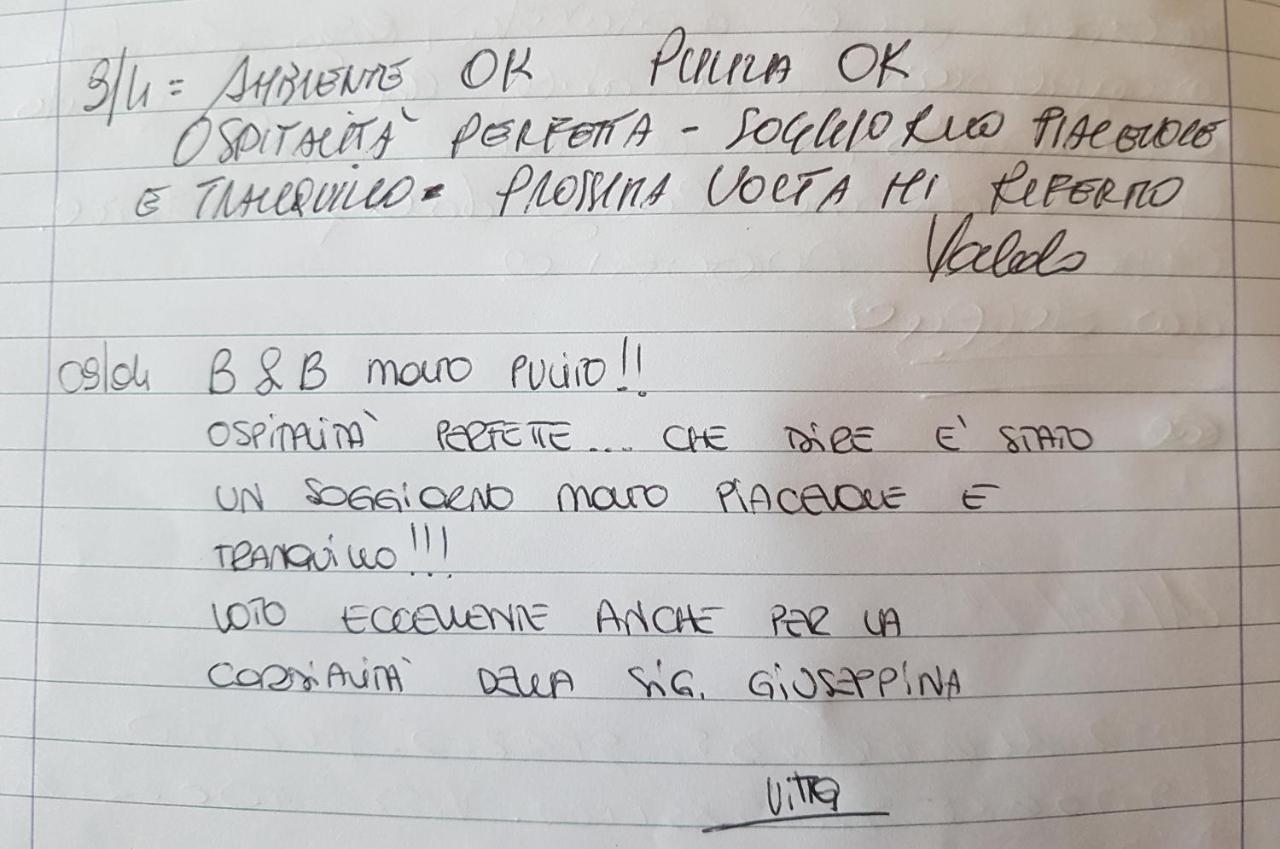 9/4 = AMBIENTE OK PULIZIA OK
OSPITALITÀ PERFETTA - SOGGIORNO PIACEVOLE
E TRANQUILLO. PROSSIMA VOLTA MI RIFERMO
09/04 B & B MOLTO PULITO!!
OSPITALITÀ PERFETTE.... CHE DIRE E' STATO
UN SOGGIORNO MOLTO PIACEVOLE E
TRANQUILLO!!!
VOTO ECCELLENTE ANCHE PER LA
CORDIALITÀ DELLA SIG. GIUSEPPINA